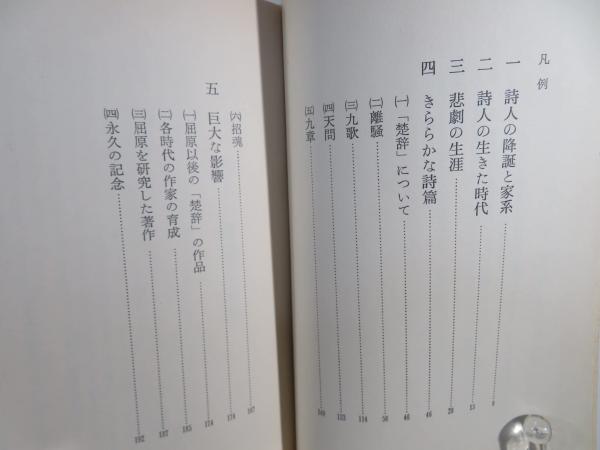 凡例
一 詩人の降誕と家系 9
二 詩人の生きた時代 13
三 悲劇の生涯 20
四 きららかな詩篇 46
㈠「楚辞」について 46
㈡離騒 50
㈢九歌 114
㈣天問 133
㈤九章
㈥招魂 167
五 巨大な影響 174
㈠屈原以後の「楚辞」の作品 174
㈡各時代の作家の育成 185
㈢屈原を研究した著作 187
㈣永久の記念 192